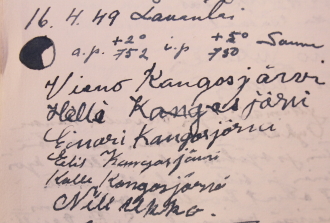 16. 4. 49 Lauantai
+2° +5°
a.p. 752 i.p 750 Sauna
Vieno Kangosjärvi
Hellä Kangosjärvi
Einari Kangosjärvi
Elis Kangosjärvi
Kalle Kangosjärvi